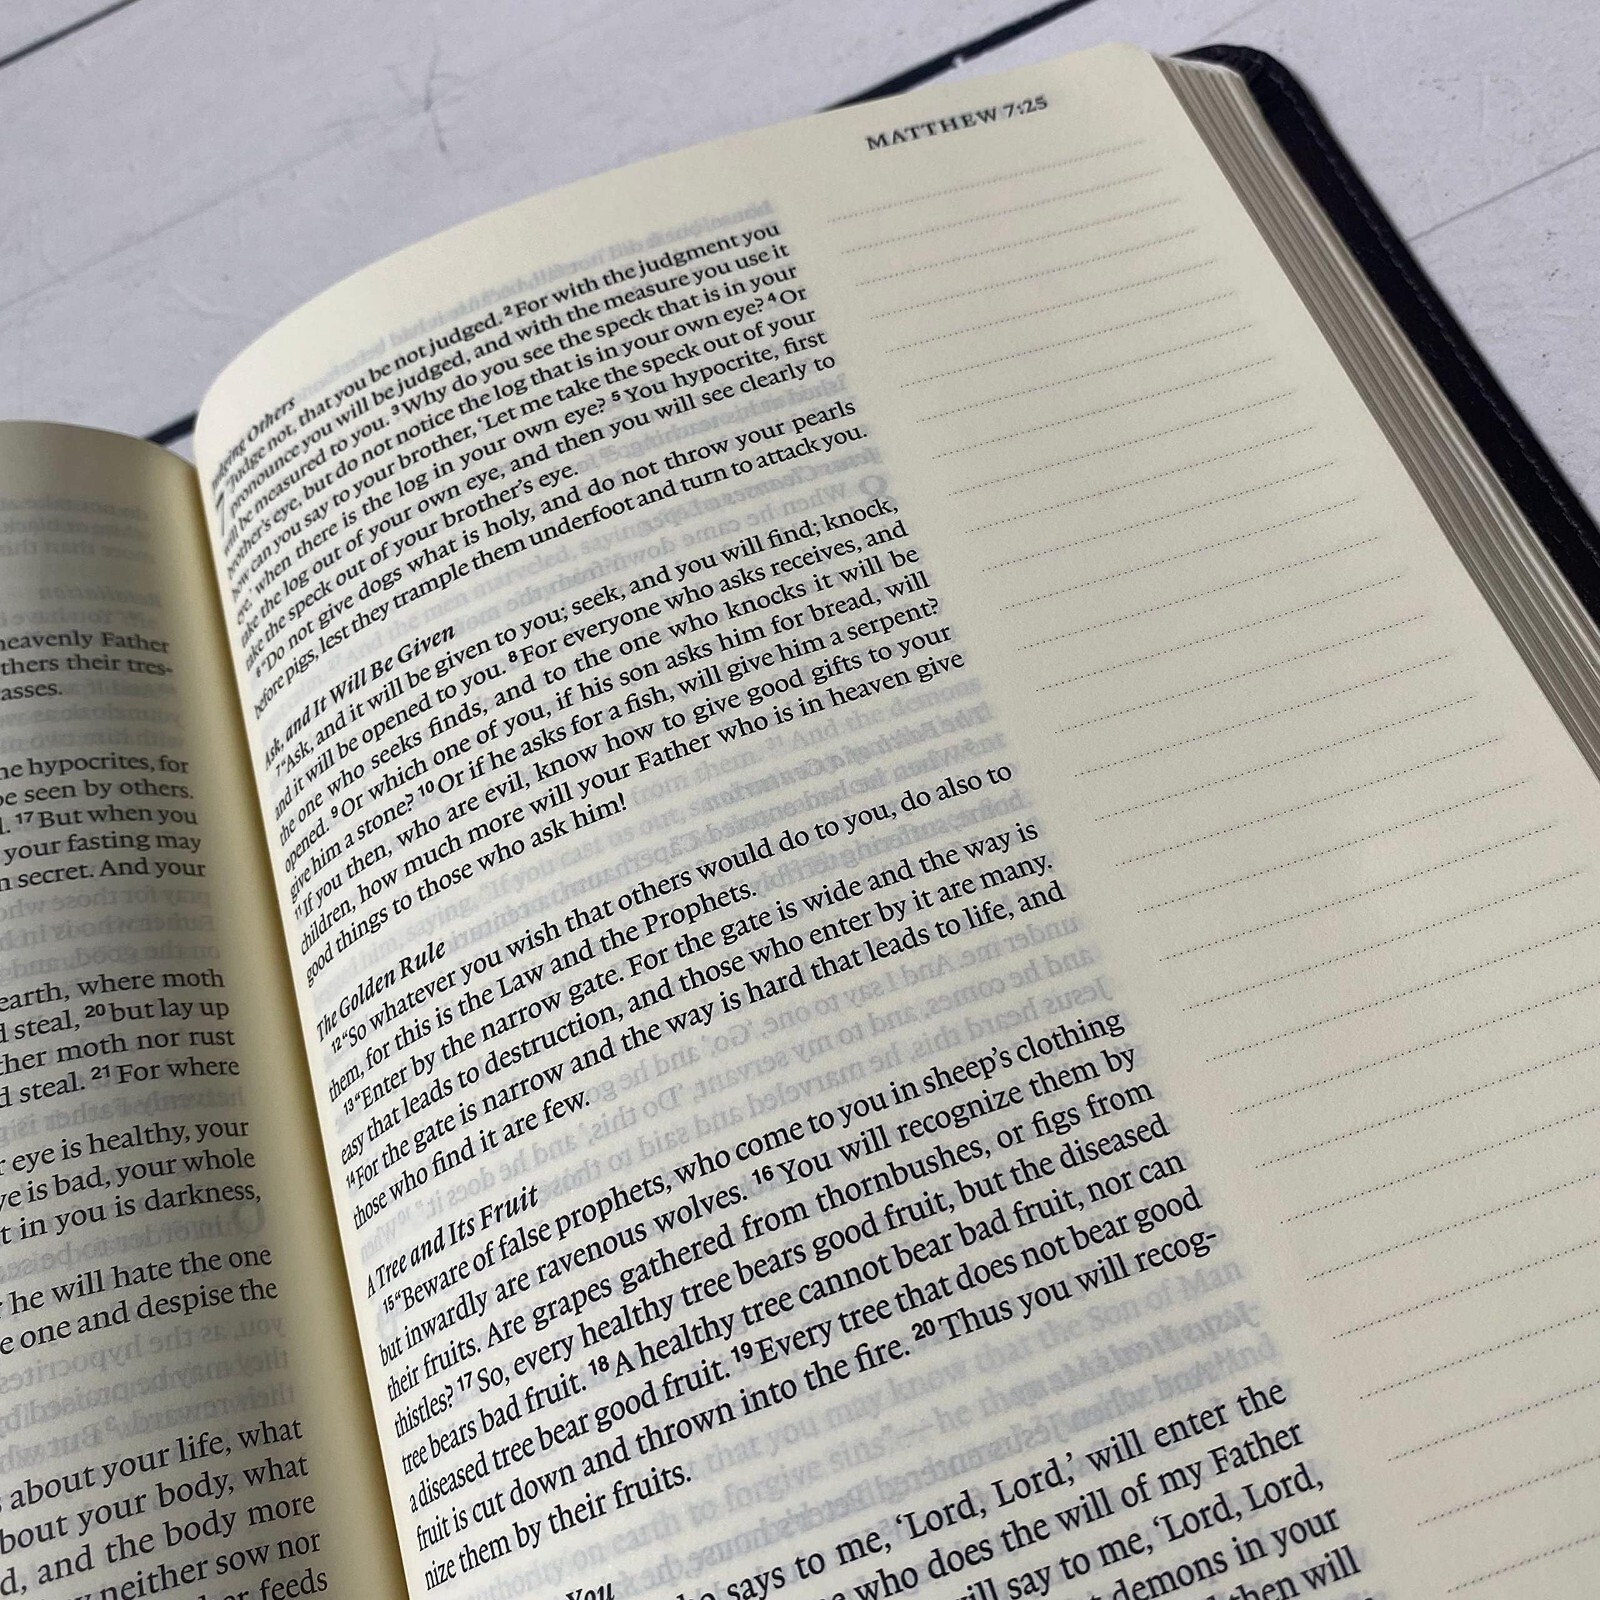 heavenly Father
thers their tres-
asses.
he hypocrites, for
be seen by others.
d. 17 But when you
your fasting may
n secret. And your
earth, where moth
d steal, 20 but lay up
ther moth nor rust
d steal. 21 For where
r eye is healthy, your
ye is bad, your whole
t in you is darkness,
r he will hate the one
e one and despise the
s about your life, what
bout your body, what
d, and the body more
y neither sow nor
her feeds
MATTHEW 7:25
Judging Others
7 "Judge not, that you be not judged. 2 For with the judgment you
pronounce you will be judged, and with the measure you use it
will be measured to you. 3 Why do you see the speck that is in your
brother's eye, but do not notice the log that is in your own eye? 4 Or
how can you say to your brother, 'Let me take the speck out of your
eye,' when there is the log in your own eye? 5 You hypocrite, first
take the log out of your own eye, and then you will see clearly to
take the speck out of your brother's eye.
6 "Do not give dogs what is holy, and do not throw your pearls
before pigs, lest they trample them underfoot and turn to attack you.
Ask, and It Will Be Given
7 "Ask, and it will be given to you; seek, and you will find; knock,
and it will be opened to you. 8 For everyone who asks receives, and
the one who seeks finds, and to the one who knocks it will be
opened. 9 Or which one of you, if his son asks him for bread, will
give him a stone? 10 Or if he asks for a fish, will give him a serpent?
11 If you then, who are evil, know how to give good gifts to your
children, how much more will your Father who is in heaven give
good things to those who ask him!
The Golden Rule
12 "So whatever you wish that others would do to you, do also to
them, for this is the Law and the Prophets.
13 "Enter by the narrow gate. For the gate is wide and the way is
easy that leads to destruction, and those who enter by it are many.
14 For the gate is narrow and the way is hard that leads to life, and
those who find it are few.
A Tree and Its Fruit
15 "Beware of false prophets, who come to you in sheep's clothing
but inwardly are ravenous wolves. 16 You will recognize them by
their fruits. Are grapes gathered from thornbushes, or figs from
thistles? 17 So, every healthy tree bears good fruit, but the diseased
tree bears bad fruit. 18 A healthy tree cannot bear bad fruit, nor can
a diseased tree bear good fruit. 19 Every tree that does not bear good
fruit is cut down and thrown into the fire. 20 Thus you will recog-
nize them by their fruits.
You
who says to me, 'Lord, Lord,' will enter the
who does the will of my Father
will say to me, 'Lord, Lord,
demons in your
then will